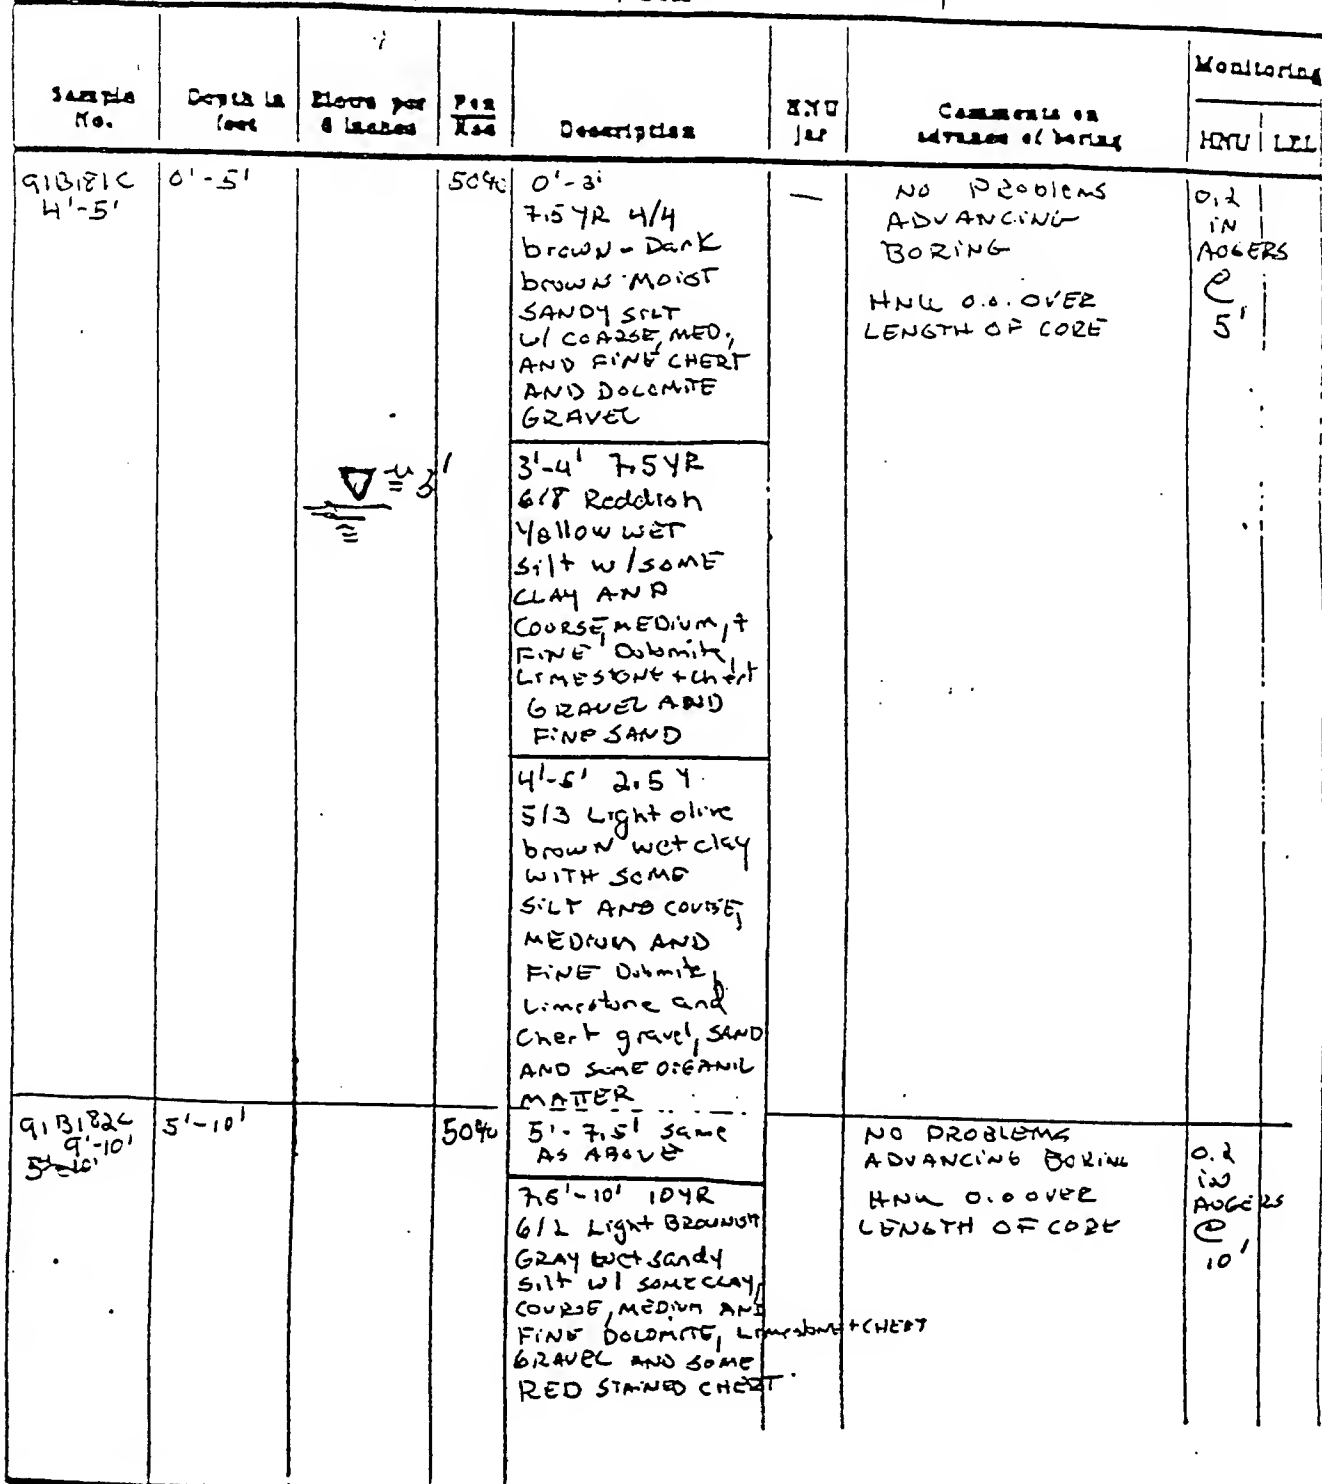 Monitoring
Sample No.
Depth in feet
Blows per 6 inches
Pen Rec
Description
HNU jar
Comments on advance of boring
HNU
LEL
91B181C
4'-5'
0'-5'
50%
0'-3'
7.5 YR 4/4
brown - Dark
brown MOIST
SANDY SILT
W/ COARSE, MED.,
AND FINE CHERT
AND DOLOMITE
GRAVEL
—
NO PROBlEMS
ADVANCING
BORING
HNU 0.0. OVER
LENGTH OF CORE
0.2
IN
AUGERS
@
5'
3'
3'-4' 7.5YR
6/8 Reddish
Yellow WET
Silt w/SOME
CLAY AND
COURSE, MEDIUM, +
FINE Dolomite,
LIMESTONE + chert
GRAVEL AND
FINE SAND
4'-5' 2.5 Y
5/3 Light olive
brown wet clay
WITH SOME
SILT AND COURSE,
MEDIUM AND
FINE Dolomite,
Limestone and
Chert gravel, SAND
AND SOME ORGANIC
MATTER
91B182C
9'-10'
5'-10'
5'-10'
50%
5'-7.5' Same
AS ABOVE
NO PROBLEMS
ADVANCING BORING
HNU 0.0 OVER
LENGTH OF CORE
0.2
IN
AUGERS
@
10'
7.5'-10' 10YR
6/2 Light BROWNISH
GRAY wet sandy
Silt w/ SOME CLAY,
COURSE, MEDIUM AND
FINE DOLOMITE, Limestone + CHERT
GRAVEL AND SOME
RED STAINED CHERT.